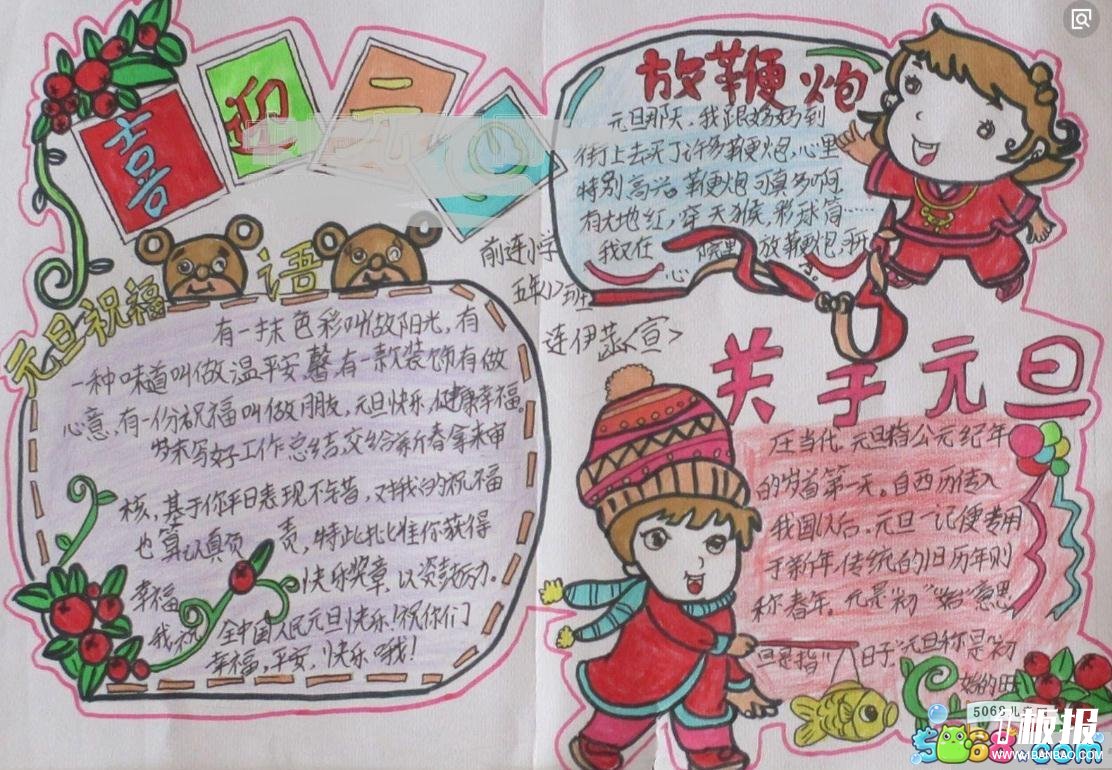 喜迎元旦
元旦祝福语
有一抹色彩叫做阳光，有
一种味道叫做温平安馨，有一款装饰有做
心意，有一份祝福叫做朋友，元旦快乐，健康幸福。
岁末写好工作总结，交给新春拿来审
核，基于你平日表现不错，对我的祝福
也算认真负责，特此批准你获得
幸福快乐奖章，以资鼓励。
我祝全中国人民元旦快乐！祝你们
幸福，平安，快乐哦！
前连小学
五年(1)班
连伊蕊<宣>
放鞭炮
元旦那天，我跟妈妈到
街上去买了许多鞭炮，心里
特别高兴。鞭炮可真多啊
有大地红，穿天猴，彩球筒……
我又在院里放鞭炮，开
心
关于元旦
在当代，元旦指公元纪年
的岁首第一天。自西历传入
我国以后，元旦一记便专用
于新年，传统的旧历年则
称春年。元是“初”“始”意思
旦是指“日子”元旦称是“初
始的日
5068儿
板报
WWW.1BANBAO.COM
5068.com